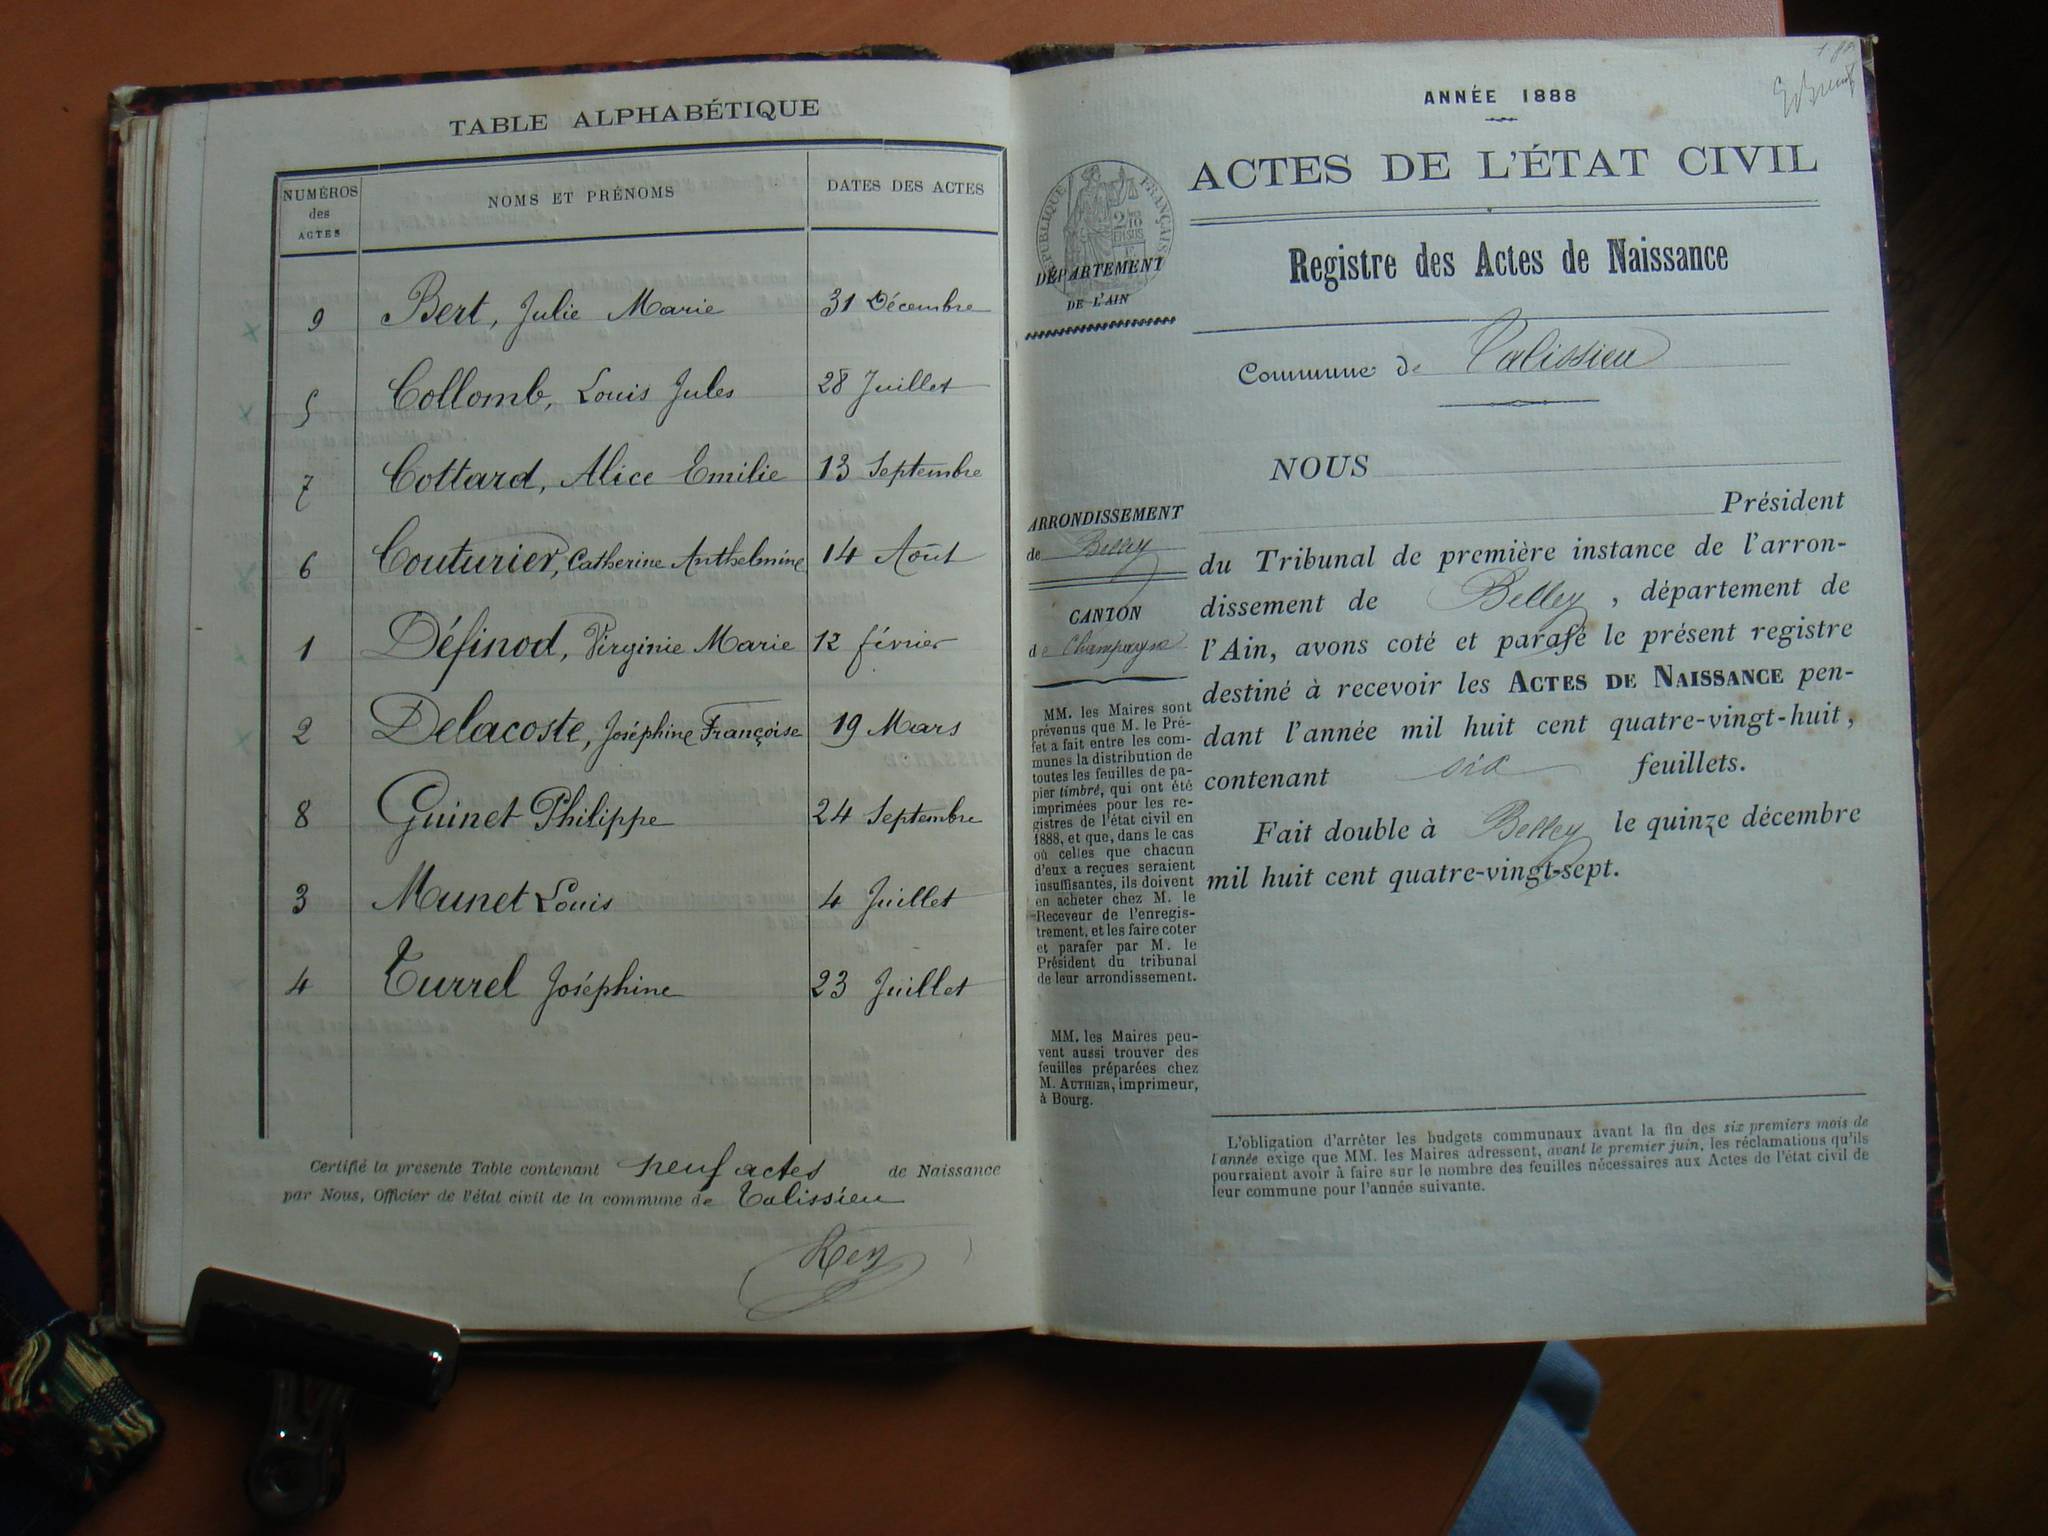 TABLE ALPHABÉTIQUE
NUMÉROS des ACTES NOMS ET PRÉNOMS DATES DES ACTES
9 Bert, Julie Marie 31 Décembre
5 Collomb, Louis Jules 28 Juillet
7 Cottard, Alice Emilie 13 Septembre
6 Couturier, Catherine Anthelmine 14 Août
1 Définod, Virginie Marie 12 février
2 Delacoste, Joséphine Françoise 19 Mars
8 Guinet Philippe 24 Septembre
3 Munet Louis 4 Juillet
4 Turrel Joséphine 23 Juillet
Certifié la présente Table contenant neuf actes de Naissance
par Nous, Officier de l'état civil de la commune de Talissieu
Rey
ANNÉE 1888
ACTES DE L'ÉTAT CIVIL
RÉPUBLIQUE FRANÇAISE
DÉPARTEMENT
DE L'AIN
Registre des Actes de Naissance
Commune de Talissieu
ARRONDISSEMENT
de Belley
CANTON
de Champagne
MM. les Maires sont
prévenus que M. le Pré-
fet a fait entre les com-
munes la distribution de
toutes les feuilles de pa-
pier timbré, qui ont été
imprimées pour les re-
gistres de l'état civil en
1888, et que, dans le cas
où celles que chacun
d'eux a reçues seraient
insuffisantes, ils doivent
en acheter chez M. le
Receveur de l'enregis-
trement, et les faire coter
et parafer par M. le
Président du tribunal
de leur arrondissement.
MM. les Maires peu-
vent aussi trouver des
feuilles préparées chez
M. AUTHIER, imprimeur,
à Bourg.
NOUS
Président
du Tribunal de première instance de l'arron-
dissement de Belley, département de
l'Ain, avons coté et parafé le présent registre
destiné à recevoir les ACTES DE NAISSANCE pen-
dant l'année mil huit cent quatre-vingt-huit,
contenant six feuillets.
Fait double à Belley le quinze décembre
mil huit cent quatre-vingt-sept.
L'obligation d'arrêter les budgets communaux avant la fin des six premiers mois de
l'année exige que MM. les Maires adressent, avant le premier juin, les réclamations qu'ils
pourraient avoir à faire sur le nombre des feuilles nécessaires aux Actes de l'état civil de
leur commune pour l'année suivante.